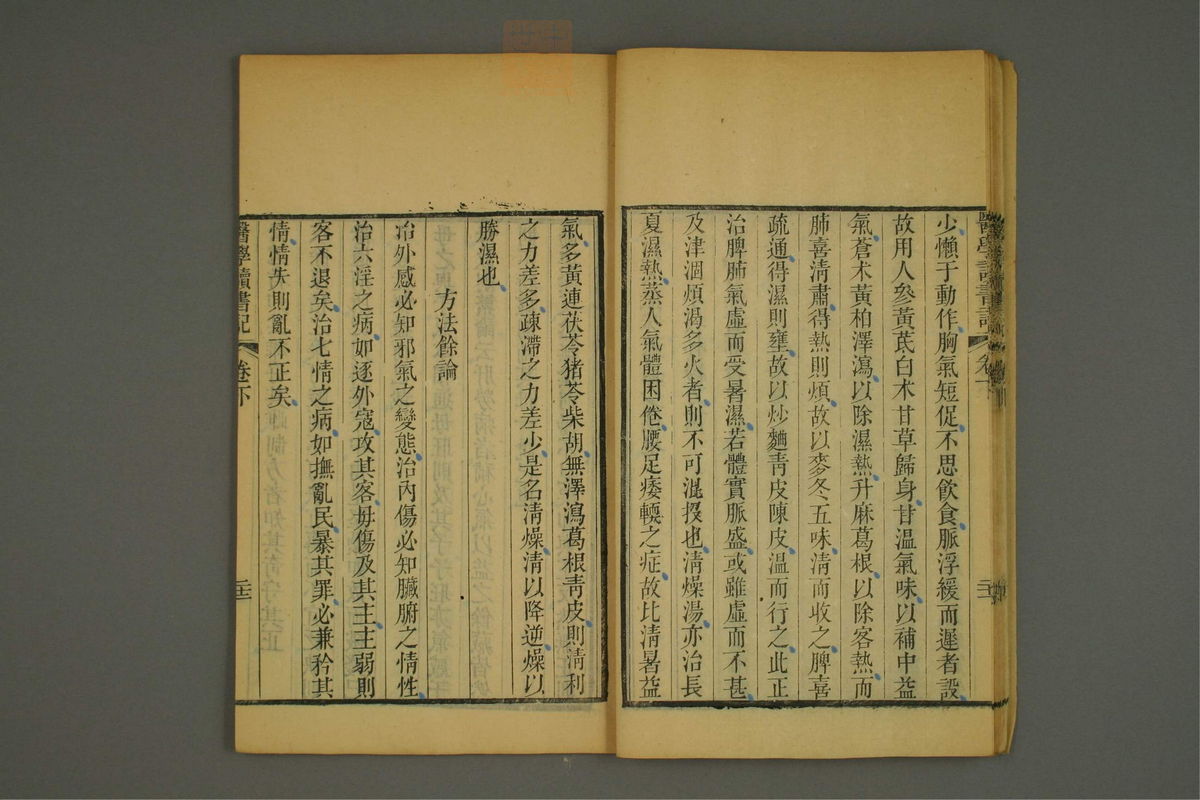 少懶于動作胸氣短促不思飲食脈浮緩而遲者設
故用人參黃芪白术甘草歸身甘溫氣味以補中益
氣蒼术黃柏澤瀉以除濕熱升麻葛根以除客熱而
肺喜淸肅得熱則煩故以麥冬五味淸而收之脾喜
疏通得濕則壅故以炒麯靑皮陳皮溫而行之此正
治脾肺氣虛而受暑濕若體實脈盛或雖虛而不甚
及津涸煩渴多火者則不可混投也淸燥湯亦治長
夏濕熱蒸人氣體困倦腰足痿輭之症故比淸暑益
氣多黃連茯苓猪苓柴胡無澤瀉葛根靑皮則淸利
之力差多疎滯之力差少是名淸燥淸以降逆燥以
勝濕也
方法餘論
治外感必知邪氣之變態治內傷必知臟腑之情性
治六淫之病如逐外寇攻其客毋傷及其主主弱則
客不退矣治七情之病如撫亂民暴其罪必兼矜其
情情失則亂不正矣
醫學讀書記 卷下 二十二